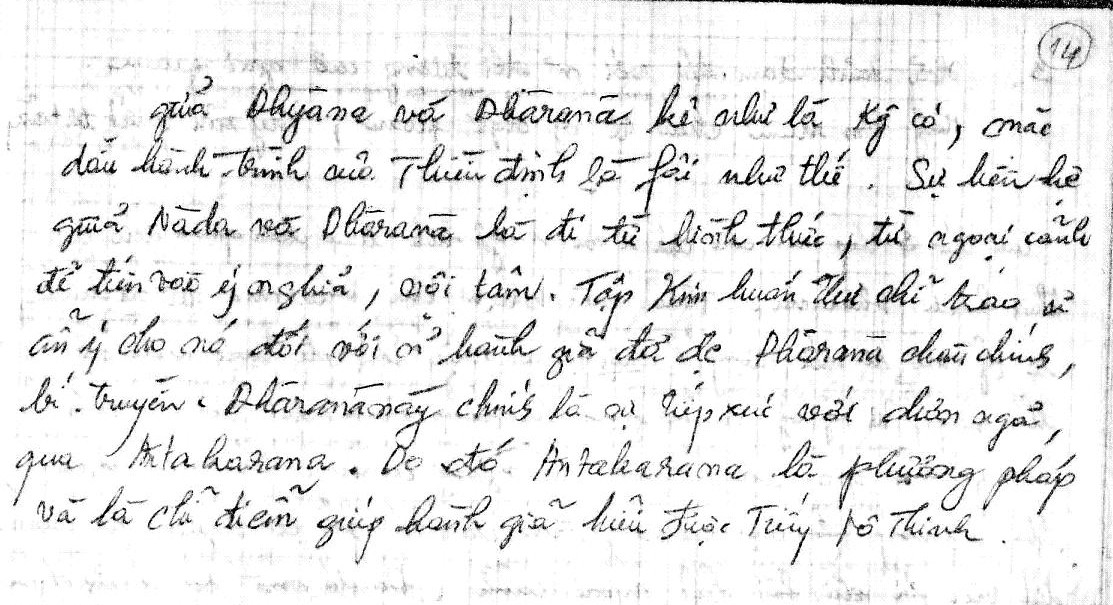 14
giữa Dhyāna và Dhāranā kể như là Kỹ có, mặc
dầu hành trình của Thiền định là fải như thế. Sự liên hệ
giữa Nāda và Dhāranā là đi từ hình thức, từ ngoại cảnh
để tiến vào ý nghĩa, nội tâm. Tập Kim huấn Thư chỉ trao sự
ẩn ý cho nó đối với hành giả đã đc Dhāranā chân chính,
bí truyền. Dhāranā này chính là sự tiếp xúc với chân ngã,
qua Antaharana. Do đó Antaharana là phương pháp
và là chỉ điểm giúp hành giả hiểu được Tiếng Vô Thinh.